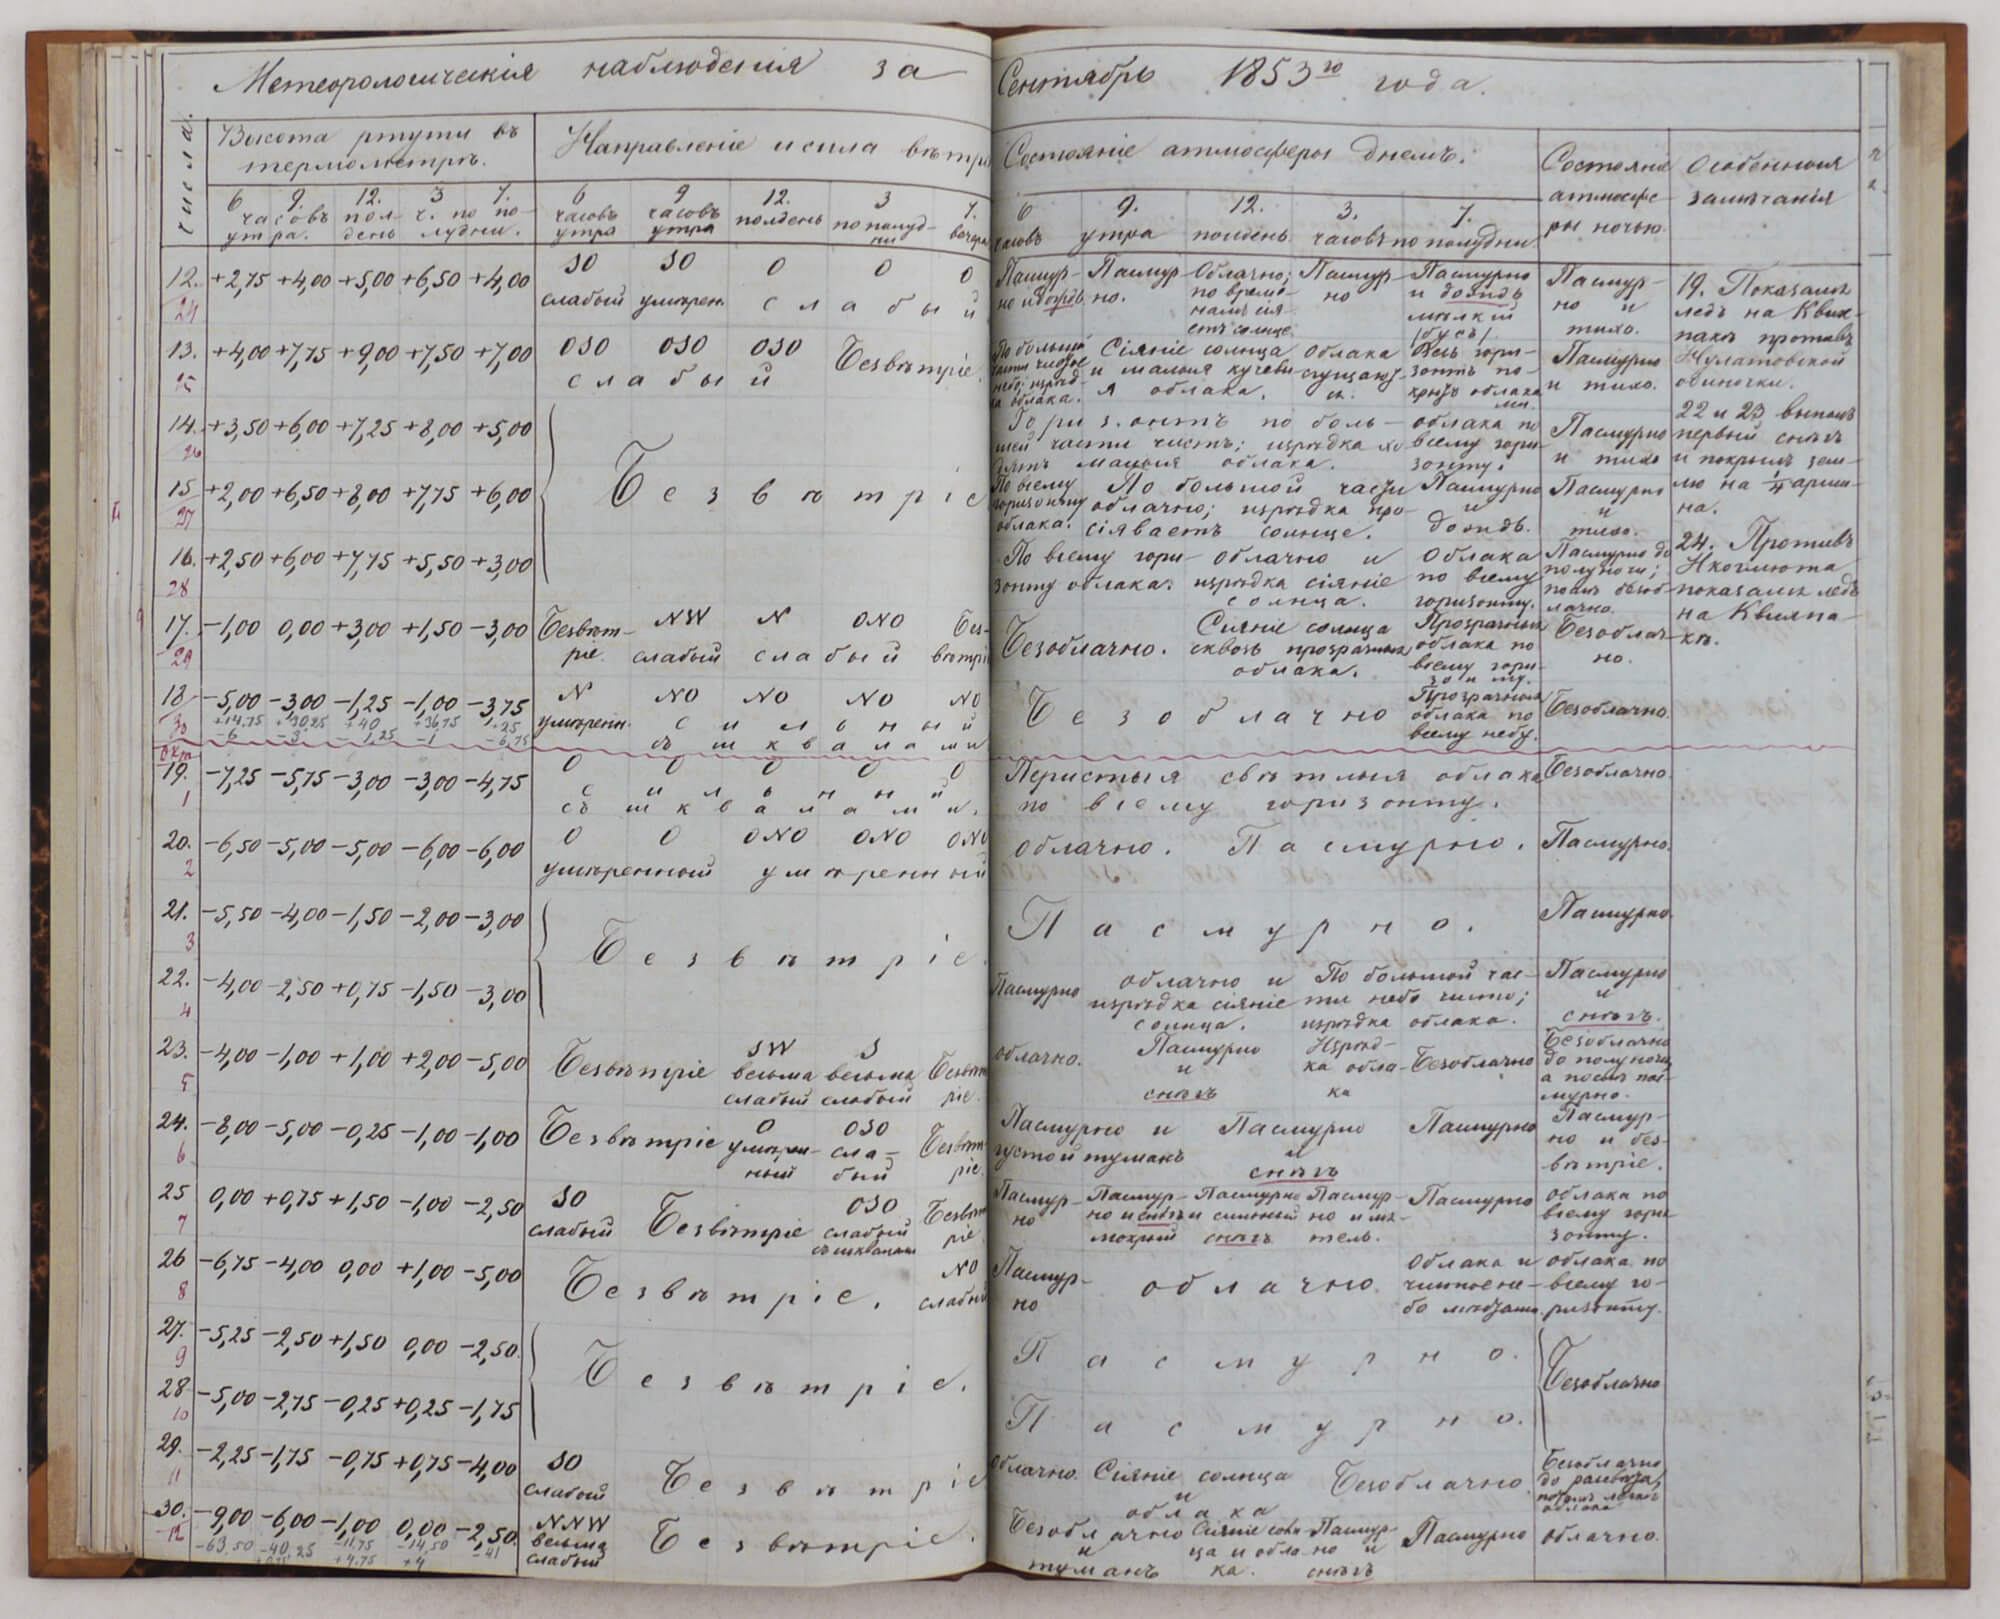 Метеорологическія наблюденія за Сентябрь 1853го года.
числа.
Высота ртути въ термометрѣ.
Направленіе и сила вѣтра
Состояніе атмосферы днемъ.
Состояніе атмосферы ночью.
Особенныя замѣчанія
6 9. 12. 3 7.
часовъ утра. полдень ч. по полудни.
6 часовъ утра
9 часовъ утра
12. полдень
3 по полудни
7. вечера
6 9. 12. 3. 7.
часовъ утра полдень. часовъ по полудни
12. 24 +2,75 +4,00 +5,00 +6,50 +4,00
SO SO O O O
слабый умѣрен. слабый
Пасмурно и дождь Пасмурно. Облачно; по временамъ сія- етъ солнце. Пасмурно Пасмурно и дождь мѣлкій /бусъ/
Пасмурно и тихо.
13. 25 +4,00 +7,75 +9,00 +7,50 +7,00
OSO OSO OSO Безвѣтріе.
слабый
По большой части чистое небо; изрѣдка облака. Сіяніе солнца и малыя кучевыя облака. Облака сгущаются. Весь горизонтъ покрытъ облаками.
Пасмурно и тихо.
14. 26 +3,50 +6,00 +7,25 +8,00 +5,00
Горизонтъ по большей части чистъ; изрѣдка ходятъ малыя облака. облака по всему горизонту.
Пасмурно и тихо
15 27 +2,00 +6,50 +8,00 +7,75 +6,00
Безвѣтріе
По всему горизонту облака. По большой части облачно; изрѣдка просіяваетъ солнце. Пасмурно и дождь.
Пасмурно и тихо.
16. 28 +2,50 +6,00 +7,75 +5,50 +3,00
По всему горизонту облака. Облачно и изрѣдка сіяніе солнца. Облака по всему горизонту.
Пасмурно до полуночи; послѣ безоблачно.
17. 29 -1,00 0,00 +3,00 +1,50 -3,00
Безвѣтріе. NW N ONO Безвѣтріе
слабый слабый
Безоблачно. Сіяніе солнца сквозь прозрачныя облака. Прозрачныя облака по всему горизонту.
Безоблачно.
18 30 -5,00 -3,00 -1,25 -1,00 -3,75
+14.75 +30.25 +40 +36,75 +25
-6 -3 -1,25 -1 -6,75
N NO NO NO NO
умѣрен. сильный
съ шквалами
Безоблачно Прозрачныя облака по всему небу.
Безоблачно.
Окт
19. 1 -7,25 -5,75 -3,00 -3,00 -4,75
O O O O O
сильный
съ шквалами.
Перистыя свѣтлыя облака по всему горизонту.
Безоблачно.
20. 2 -6,50 -5,00 -5,00 -6,00 -6,00
O O ONO ONO ONO
умѣренный умѣренный
Облачно. Пасмурно.
Пасмурно.
21. 3 -5,50 -4,00 -1,50 -2,00 -3,00
Безвѣтріе.
Пасмурно.
Пасмурно.
22. 4 -4,00 -2,50 +0,75 -1,50 -3,00
Пасмурно облачно и изрѣдка сіяніе солнца. По большой части небо чисто; изрѣдка облака.
Пасмурно и снѣгъ.
23. 5 -4,00 -1,00 +1,00 +2,00 -5,00
Безвѣтріе SW весьма слабый S весьма слабый Безвѣтріе.
Облачно. Пасмурно и снѣгъ Изрѣдка облака Безоблачно
Безоблачно до полуночи, а послѣ пасмурно.
24. 6 -8,00 -5,00 -0,25 -1,00 -1,00
Безвѣтріе O умѣренный OSO слабый Безвѣтріе.
Пасмурно и густой туманъ Пасмурно и снѣгъ Пасмурно
Пасмурно и безвѣтріе.
25 7 0,00 +0,75 +1,50 -1,00 -2,50
SO слабый Безвѣтріе OSO слабый съ шквалами Безвѣтріе.
Пасмурно Пасмурно и снѣгъ мокрый Пасмурно и сильный снѣгъ Пасмурно и мятель. Пасмурно
облака по всему горизонту.
26 8 -6,75 -4,00 0,00 +1,00 -5,00
Безвѣтріе. NO слабый
Пасмурно облачно. Облака и чистое небо мѣстами.
облака по всему горизонту.
27. 9 -5,25 -2,50 +1,50 0,00 -2,50.
Безвѣтріе.
Пасмурно.
Безоблачно
28 10 -5,00 -2,75 -0,25 +0,25 -1,75
Пасмурно.
29. 11 -2,25 -1,75 -0,75 +0,75 -4,00
SO слабый Безвѣтріе
Облачно. Сіяніе солнца и облака Безоблачно.
Безоблачно до разсвѣта, облака
30. 12 -9,00 -6,00 -1,00 0,00 -2,50.
-63.50 -40,25 -11.75 -14,50 -41
+4.75 +4
NNW весьма слабый Безвѣтріе.
Безоблачно и туманъ Сіяніе солнца и облака. Пасмурно и снѣгъ Пасмурно
облачно.
19. Показался
ледъ на Квих-
пакѣ противъ
Нулатовской
одиночки.
22 и 23 выпалъ
первый снѣгъ
и покрылъ зем-
лю на 1/4 арши-
на.
24. Противъ
Икогмюта
показался ледъ
на Квихпа-
кѣ.